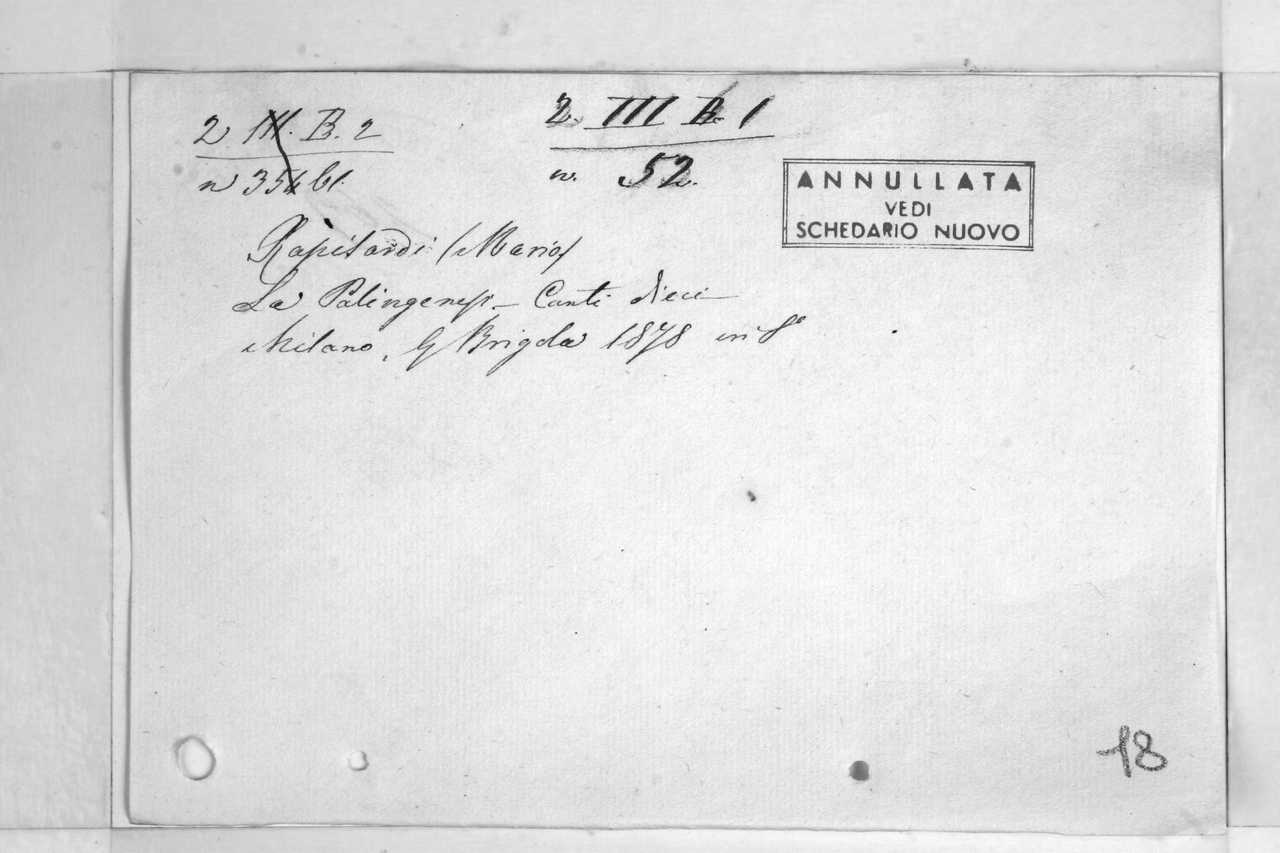 2 III. B. 2
2. III B. 1
n. 52
ANNULLATA
VEDI
SCHEDARIO NUOVO
Rapisardi (Mario)
La Palingenesi - Canti dieci
Milano, G Brigola 1878 in 8°
18